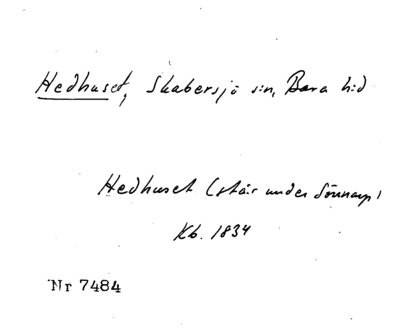 Hedhuset, Skabersjö sn, Bara hd
Hedhuset (står under Sönnarp)
Kb. 1834
Nr 7484